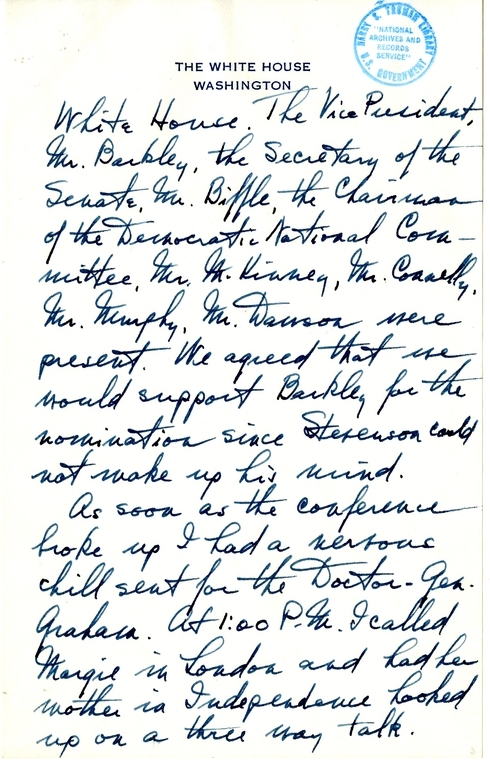 HARRY S. TRUMAN LIBRARY
"NATIONAL
ARCHIVES AND
RECORDS
SERVICE"
U.S. GOVERNMENT
THE WHITE HOUSE
WASHINGTON
White House. The Vice President,
Mr. Barkley, the Secretary of the
Senate, Mr. Biffle, the Chairman
of the Democratic National Com-
mittee, Mr. McKinney, Mr. Connelly,
Mr. Murphy, Mr. Dawson were
present. We agreed that we
would support Barkley for the
nomination since Stevenson could
not make up his mind.
As soon as the conference
broke up I had a nervous
chill sent for the Doctor-Gen.
Graham. At 1:00 P.M. I called
Margie in London and had her
mother in Independence hooked
up on a three way talk.